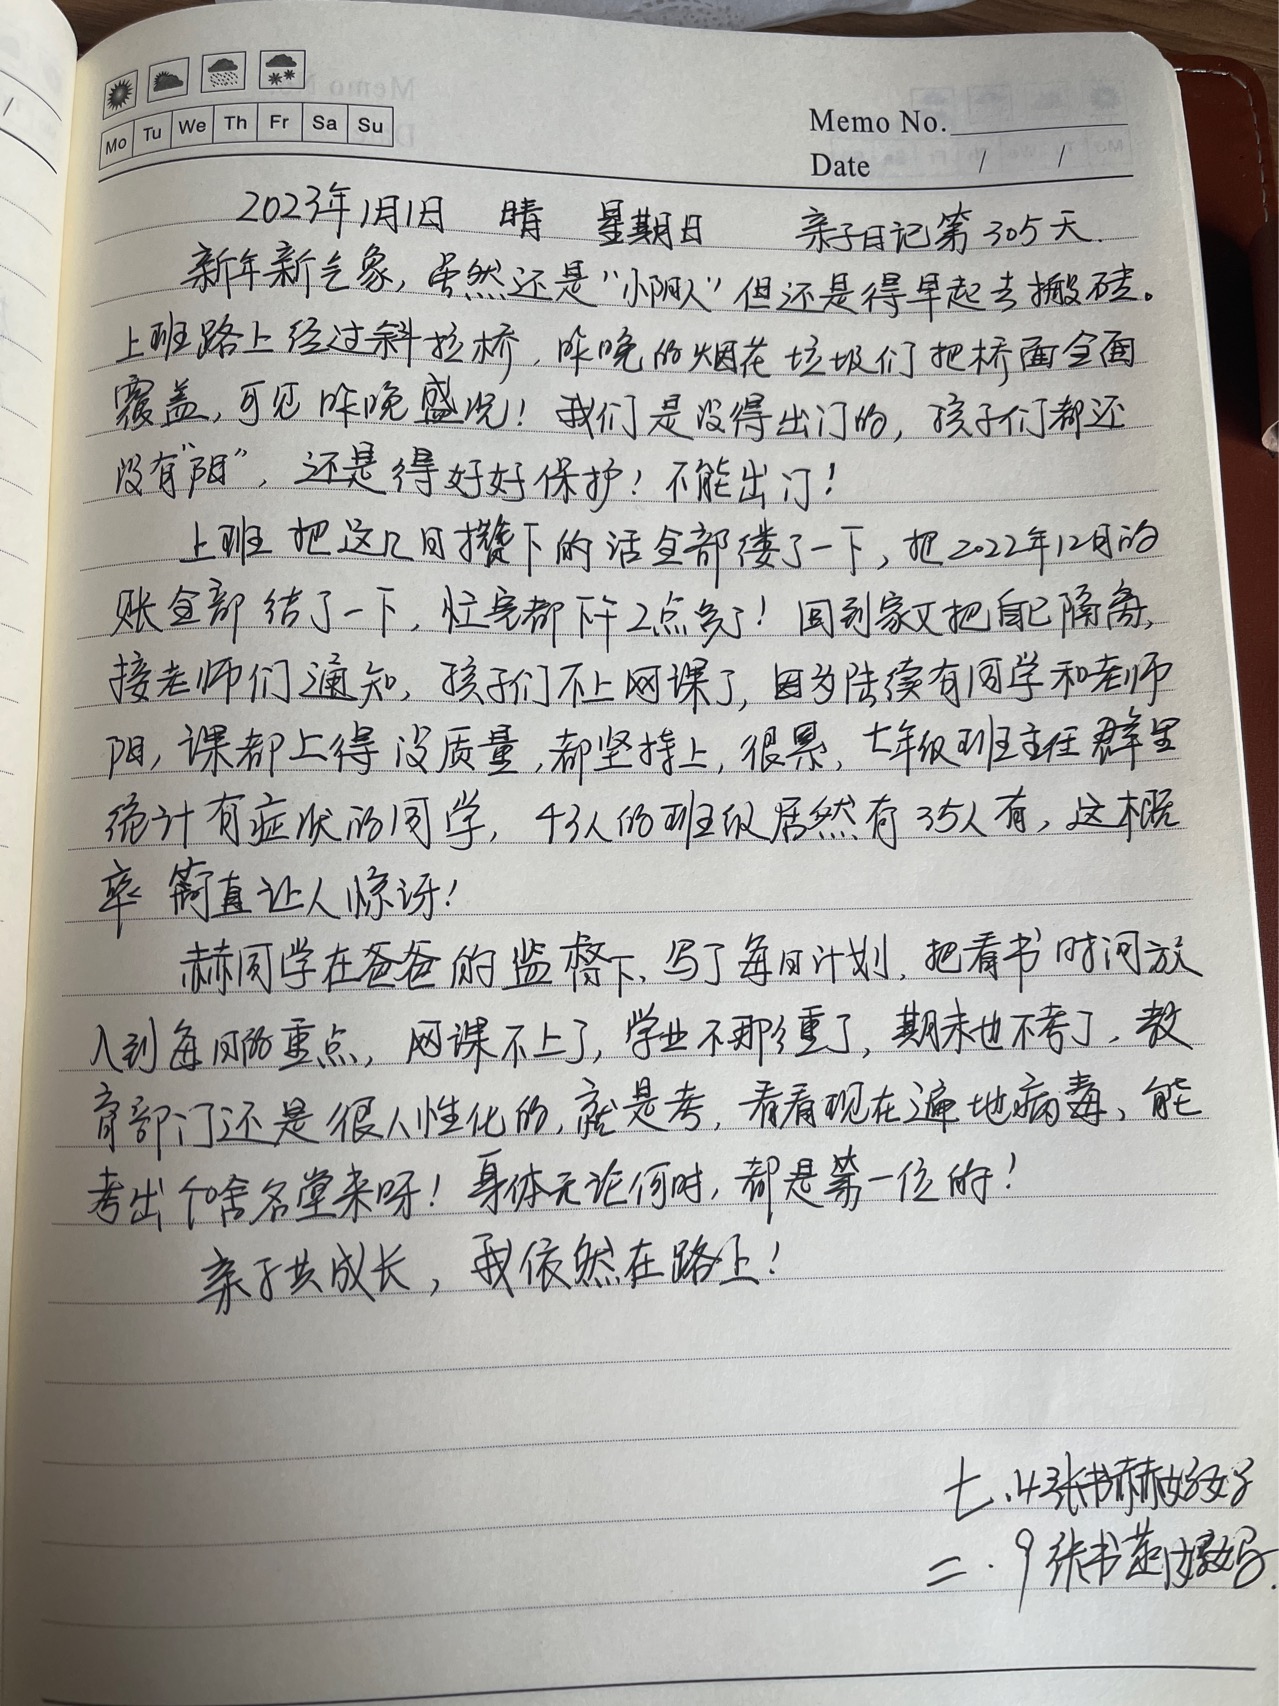 Mo Tu We Th Fr Sa Su
Memo No.
Date / /
2023年1月1日 晴 星期日 亲子日记第305天.
新年新气象,虽然还是“小阳人”但还是得早起去搬砖。
上班路上经过斜拉桥,昨晚的烟花垃圾们把桥面全面
覆盖,可见昨晚盛况!我们是没得出门的,孩子们都还
没有“阳”,还是得好好保护!不能出门!
上班把这几日攒下的活全部偻了一下,把2022年12月的
账全部结了一下,忙完都下午2点多了!回到家又把自己隔离,
接老师们通知,孩子们不上网课了,因为陆续有同学和老师
阳,课都上得没质量,都坚持上,很累,七年级班主任群里
统计有症状的同学,43人的班级居然有35人有,这概
率简直让人惊讶!
赫同学在爸爸的监督下,写了每日计划,把看书时间放
入到每日的重点,网课不上了,学业不那重了,期末也不考了,教
育部门还是很人性化的,就是考,看看现在遍地病毒、能
考出个啥名堂来呀!身体无论何时,都是第一位的!
亲子共成长,我依然在路上!
七.4张书赫妈妈
二.9张书 妈妈.